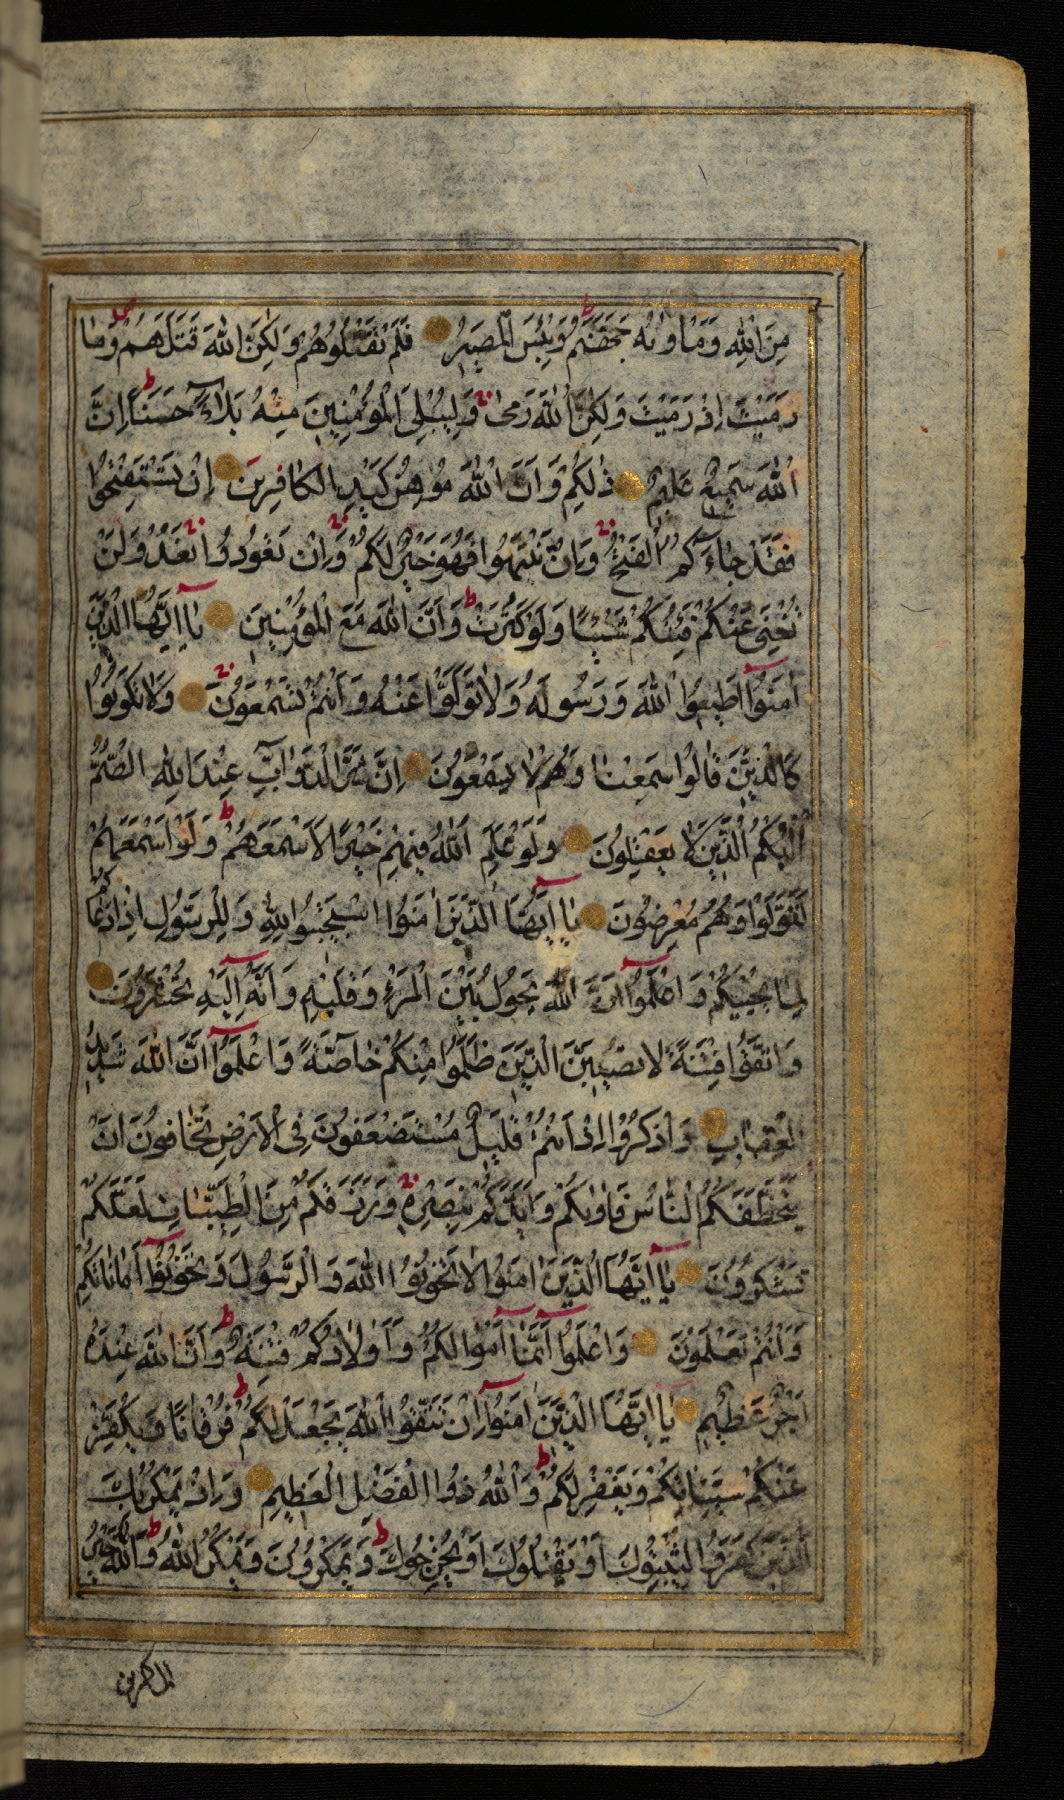 مِنَ اللهِ وَمَاْوٰيهُ جَهَنَّمُ وَبِئْسَ الْمَصِيرُ فَلَمْ تَقْتُلُوهُمْ وَلٰكِنَّ اللهَ قَتَلَهُمْ وَمَا
رَمَيْتَ اِذْ رَمَيْتَ وَلٰكِنَّ اللهَ رَمٰى وَلِيُبْلِىَ الْمُؤْمِنِينَ مِنْهُ بَلَاءً حَسَنًا اِنَّ
اللهَ سَمِيعٌ عَلِيمٌ ذٰلِكُمْ وَاَنَّ اللهَ مُوهِنُ كَيْدِ الْكَافِرِينَ اِنْ تَسْتَفْتِحُوا
فَقَدْ جَاءَكُمُ الْفَتْحُ وَاِنْ تَنْتَهُوا فَهُوَ خَيْرٌ لَكُمْ وَاِنْ تَعُودُوا نَعُدْ وَلَنْ
تُغْنِىَ عَنْكُمْ فِئَتُكُمْ شَيْئًا وَلَوْ كَثُرَتْ وَاَنَّ اللهَ مَعَ الْمُؤْمِنِينَ يَا اَيُّهَا الَّذِينَ
اٰمَنُوا اَطِيعُوا اللهَ وَرَسُولَهُ وَلَا تَوَلَّوْا عَنْهُ وَاَنْتُمْ تَسْمَعُونَ وَلَا تَكُونُوا
كَالَّذِينَ قَالُوا سَمِعْنَا وَهُمْ لَا يَسْمَعُونَ اِنَّ شَرَّ الدَّوَابِّ عِنْدَ اللهِ الصُّمُّ
الْبُكْمُ الَّذِينَ لَا يَعْقِلُونَ وَلَوْ عَلِمَ اللهُ فِيهِمْ خَيْرًا لَاَسْمَعَهُمْ وَلَوْ اَسْمَعَهُمْ
لَتَوَلَّوْا وَهُمْ مُعْرِضُونَ يَا اَيُّهَا الَّذِينَ اٰمَنُوا اسْتَجِيبُوا لِلّٰهِ وَلِلرَّسُولِ اِذَا دَعَاكُمْ
لِمَا يُحْيِيكُمْ وَاعْلَمُوا اَنَّ اللهَ يَحُولُ بَيْنَ الْمَرْءِ وَقَلْبِهِ وَاَنَّهُ اِلَيْهِ تُحْشَرُونَ
وَاتَّقُوا فِتْنَةً لَا تُصِيبَنَّ الَّذِينَ ظَلَمُوا مِنْكُمْ خَاصَّةً وَاعْلَمُوا اَنَّ اللهَ شَدِيدُ
الْعِقَابِ وَاذْكُرُوا اِذْ اَنْتُمْ قَلِيلٌ مُسْتَضْعَفُونَ فِى الْاَرْضِ تَخَافُونَ اَنْ
يَتَخَطَّفَكُمُ النَّاسُ فَاٰوٰيكُمْ وَاَيَّدَكُمْ بِنَصْرِهِ وَرَزَقَكُمْ مِنَ الطَّيِّبَاتِ لَعَلَّكُمْ
تَشْكُرُونَ يَا اَيُّهَا الَّذِينَ اٰمَنُوا لَا تَخُونُوا اللهَ وَالرَّسُولَ وَتَخُونُوا اَمَانَاتِكُمْ
وَاَنْتُمْ تَعْلَمُونَ وَاعْلَمُوا اَنَّمَا اَمْوَالُكُمْ وَاَوْلَادُكُمْ فِتْنَةٌ وَاَنَّ اللهَ عِنْدَهُ
اَجْرٌ عَظِيمٌ يَا اَيُّهَا الَّذِينَ اٰمَنُوا اِنْ تَتَّقُوا اللهَ يَجْعَلْ لَكُمْ فُرْقَانًا وَيُكَفِّرْ
عَنْكُمْ سَيِّئَاتِكُمْ وَيَغْفِرْ لَكُمْ وَاللهُ ذُوا الْفَضْلِ الْعَظِيمِ وَاِذْ يَمْكُرُ بِكَ
الَّذِينَ كَفَرُوا لِيُثْبِتُوكَ اَوْ يَقْتُلُوكَ اَوْ يُخْرِجُوكَ وَيَمْكُرُونَ وَيَمْكُرُ اللهُ وَاللهُ خَيْرُ
الماكرين